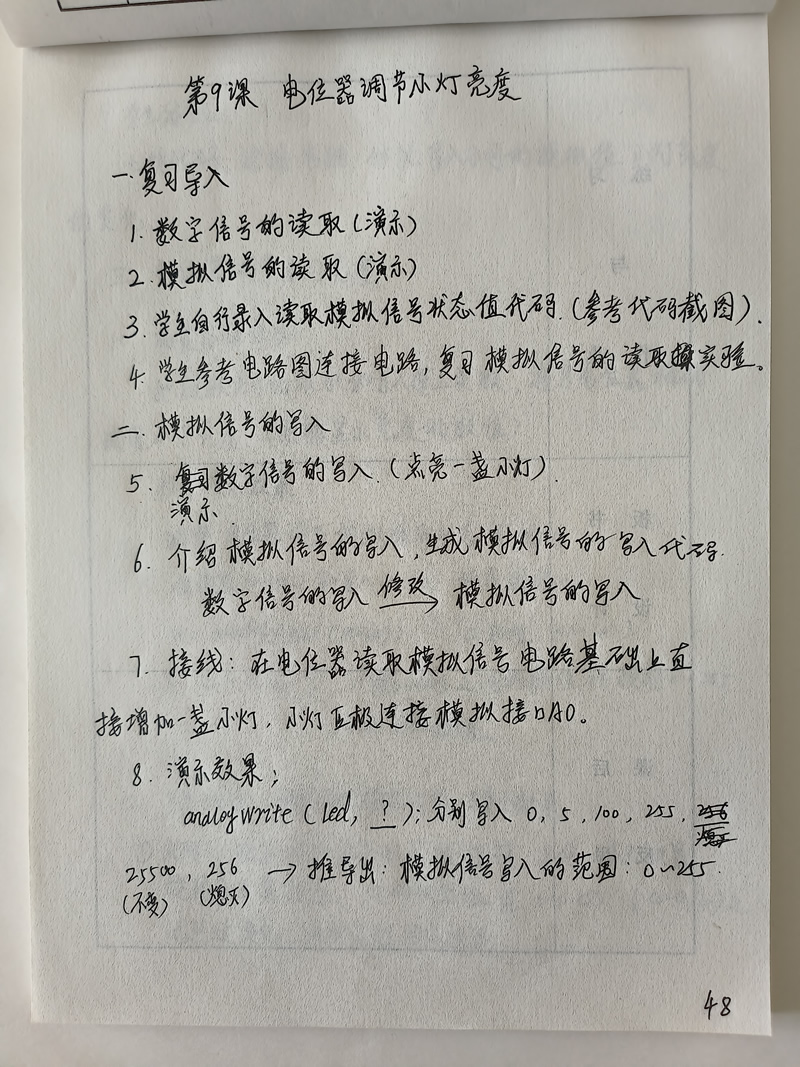 第9课 电位器调节小灯亮度
一.复习导入
1. 数字信号的读取(演示)
2. 模拟信号的读取(演示)
3. 学生自行录入读取模拟信号状态值代码.(参考代码截图).
4. 学生参考电路图连接电路,复习模拟信号的读取实验。
二.模拟信号的写入
5. 数字信号的写入.(点亮一盏小灯).
演示.
6. 介绍模拟信号的写入,生成模拟信号的写入代码.
数字信号的写入 修改→ 模拟信号的写入
7. 接线:在电位器读取模拟信号电路基础上直
接增加一盏小灯,小灯正极连接模拟接口A0。
8. 演示效果;
analogwrite(Led, ?);分别写入 0, 5, 100, 255,
25500, 256 → 推导出:模拟信号写入的范围:0~255.
(不变) (熄灭)
48